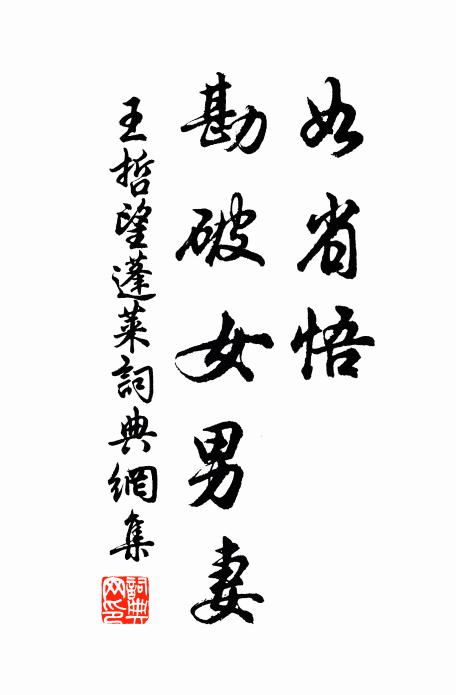 如省悟
勘破女男妻
王哲望蓬萊詞典網集
詞典
网印